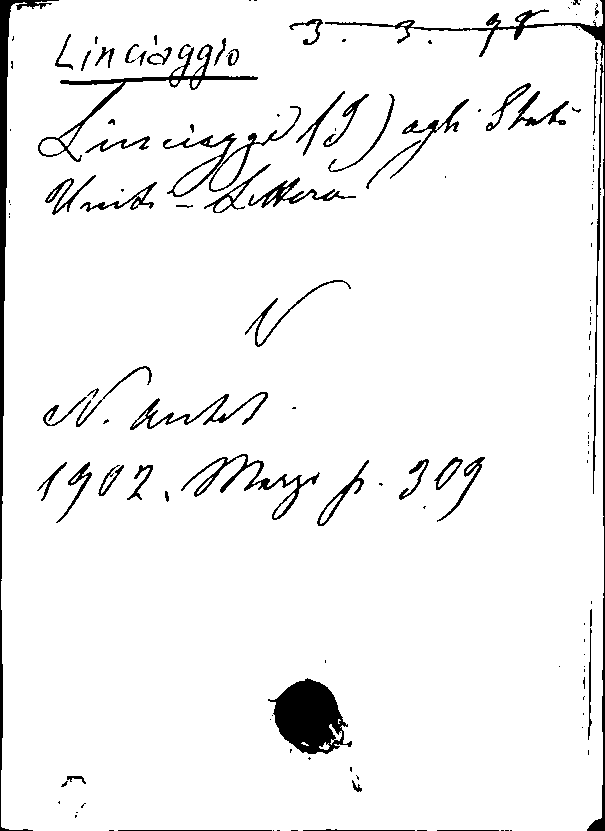 Linciaggio 3. 3. 98
Linciaggi (I) agli Stati
Uniti - Lettera
N
N. Antol.
1902. Marzo p. 309